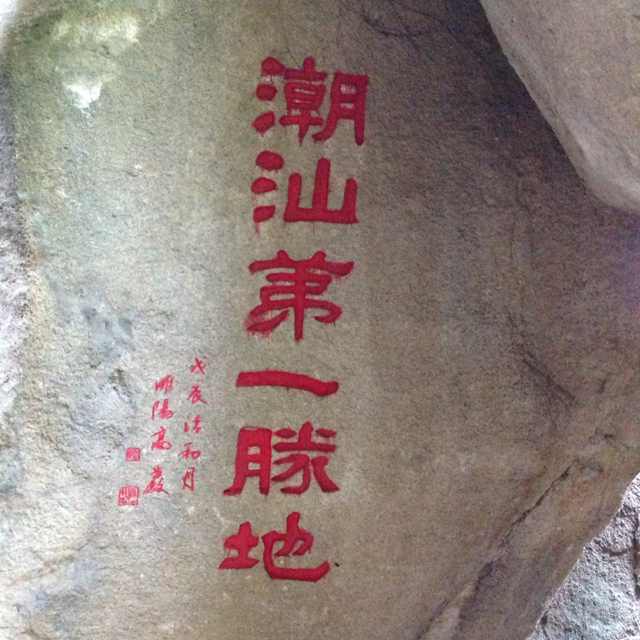 潮汕第一勝地
戊辰清和月
陽高嚴